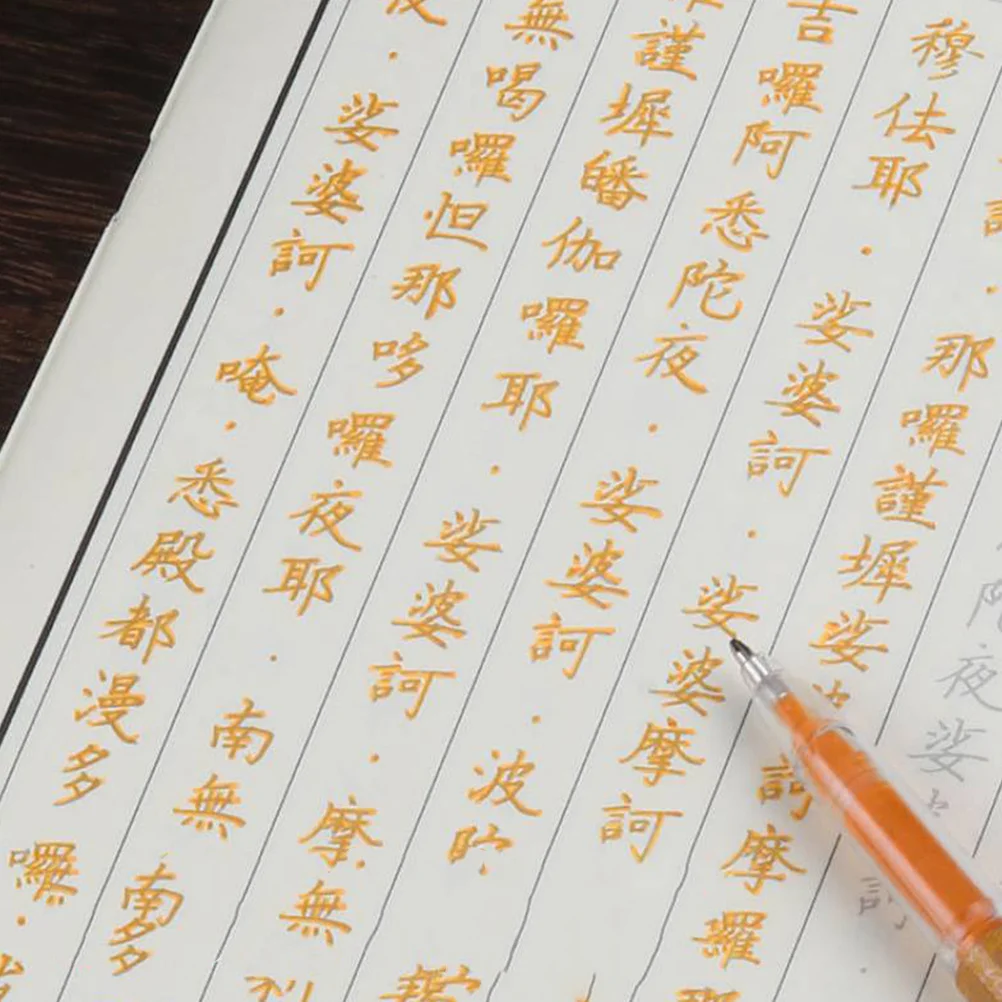 陀夜娑訶·
·那囉謹墀娑訶摩羅
穆佉耶·娑婆訶·娑婆摩訶
吉囉阿悉陀夜·娑婆訶·波
謹墀皤伽囉耶·娑婆訶·摩無
無喝囉怛那哆囉夜耶·南無南多
夜·娑婆訶·唵·悉殿都漫多囉·